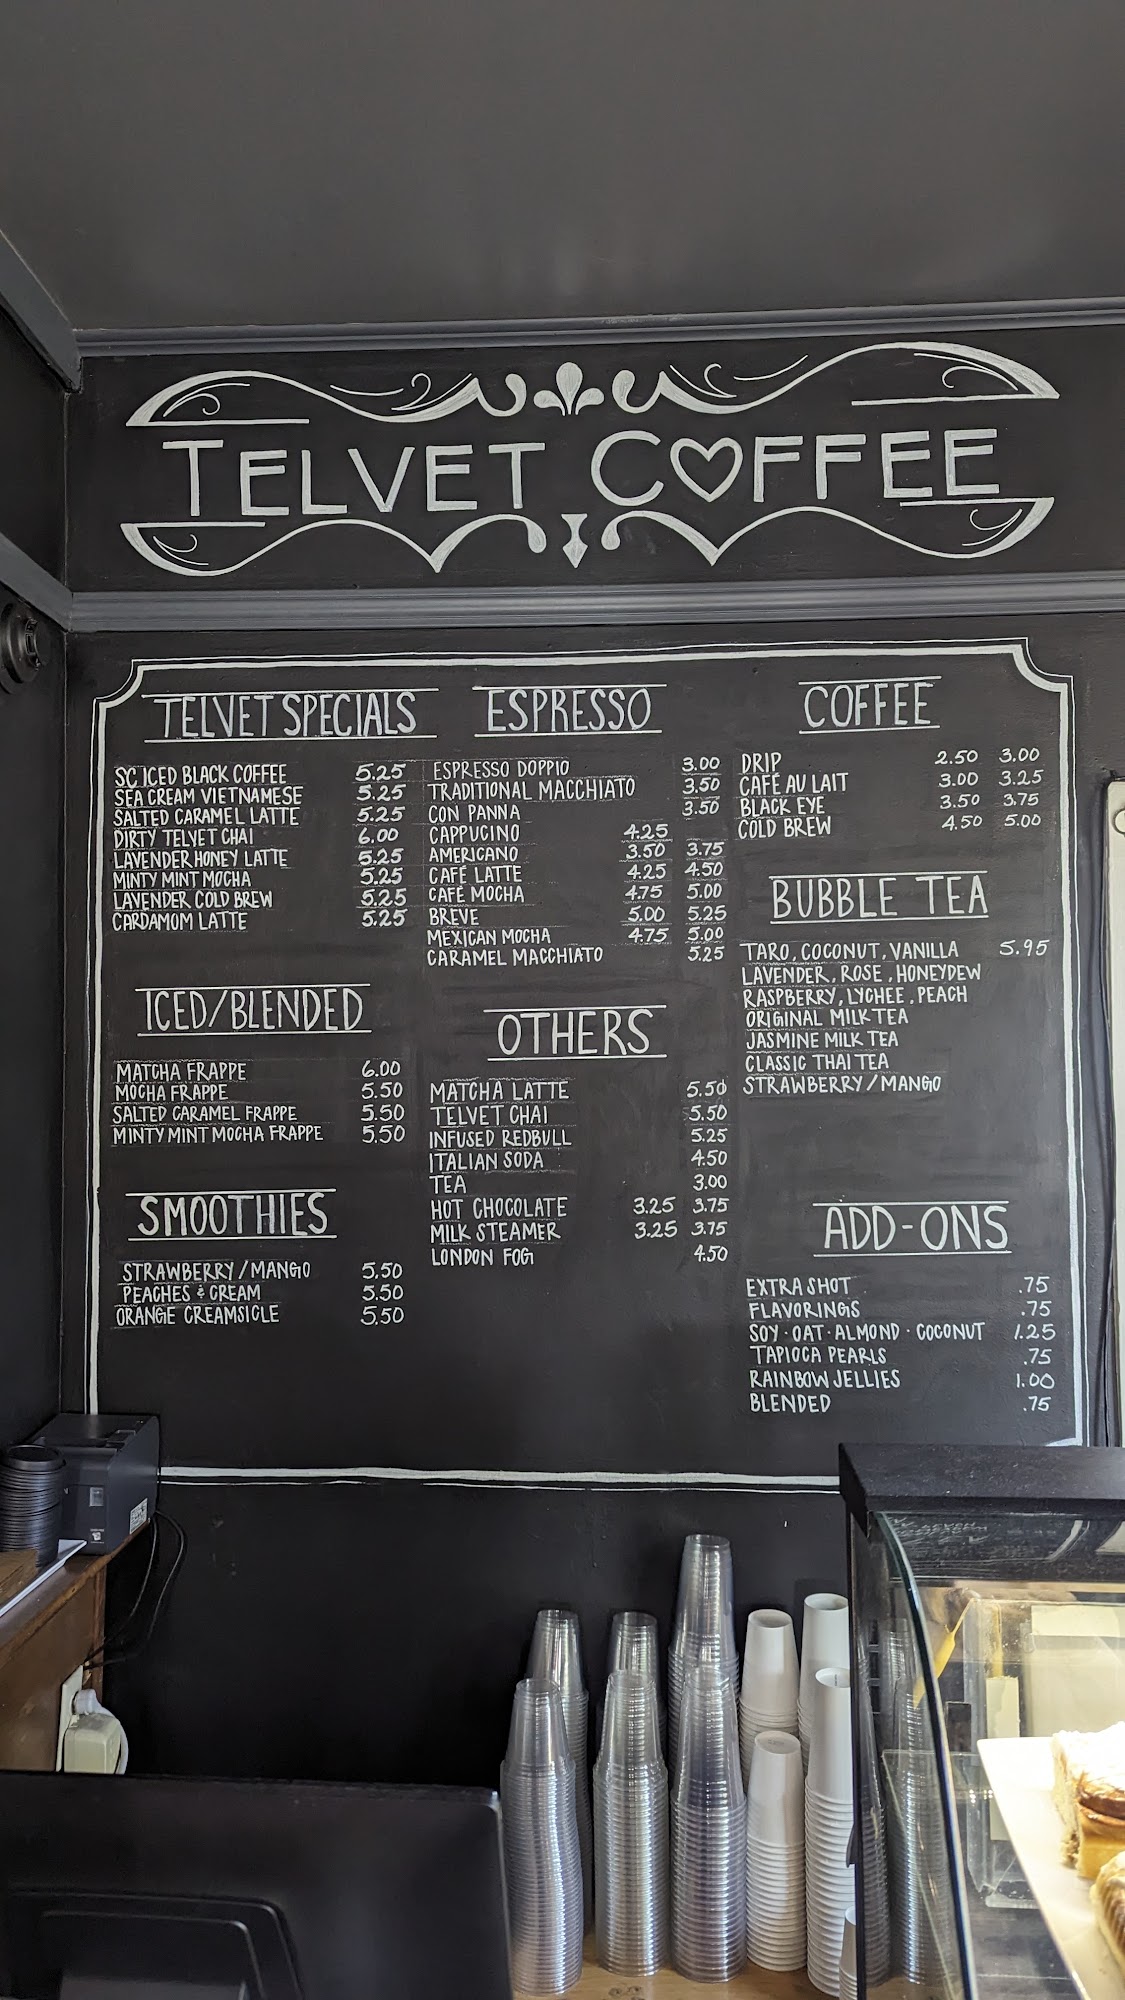 TELVET COFFEE
TELVET SPECIALS
SC ICED BLACK COFFEE 5.25
SEA CREAM VIETNAMESE 5.25
SALTED CARAMEL LATTE 5.25
DIRTY TELVET CHAI 6.00
LAVENDER HONEY LATTE 5.25
MINTY MINT MOCHA 5.25
LAVENDER COLD BREW 5.25
CARDAMOM LATTE 5.25
ICED/BLENDED
MATCHA FRAPPE 6.00
MOCHA FRAPPE 5.50
SALTED CARAMEL FRAPPE 5.50
MINTY MINT MOCHA FRAPPE 5.50
SMOOTHIES
STRAWBERRY/MANGO 5.50
PEACHES & CREAM 5.50
ORANGE CREAMSICLE 5.50
ESPRESSO
ESPRESSO DOPPIO 3.00
TRADITIONAL MACCHIATO 3.50
CON PANNA 3.50
CAPPUCINO 4.25
AMERICANO 3.50 3.75
CAFÉ LATTE 4.25 4.50
CAFÉ MOCHA 4.75 5.00
BREVE 5.00 5.25
MEXICAN MOCHA 4.75 5.00
CARAMEL MACCHIATO 5.25
OTHERS
MATCHA LATTE 5.50
TELVET CHAI 5.50
INFUSED REDBULL 5.25
ITALIAN SODA 4.50
TEA 3.00
HOT CHOCOLATE 3.25 3.75
MILK STEAMER 3.25 3.75
LONDON FOG 4.50
COFFEE
DRIP 2.50 3.00
CAFÉ AU LAIT 3.00 3.25
BLACK EYE 3.50 3.75
COLD BREW 4.50 5.00
BUBBLE TEA
TARO, COCONUT, VANILLA 5.95
LAVENDER, ROSE, HONEYDEW
RASPBERRY, LYCHEE, PEACH
ORIGINAL MILK TEA
JASMINE MILK TEA
CLASSIC THAI TEA
STRAWBERRY/MANGO
ADD-ONS
EXTRA SHOT .75
FLAVORINGS .75
SOY · OAT · ALMOND · COCONUT 1.25
TAPIOCA PEARLS .75
RAINBOW JELLIES 1.00
BLENDED .75